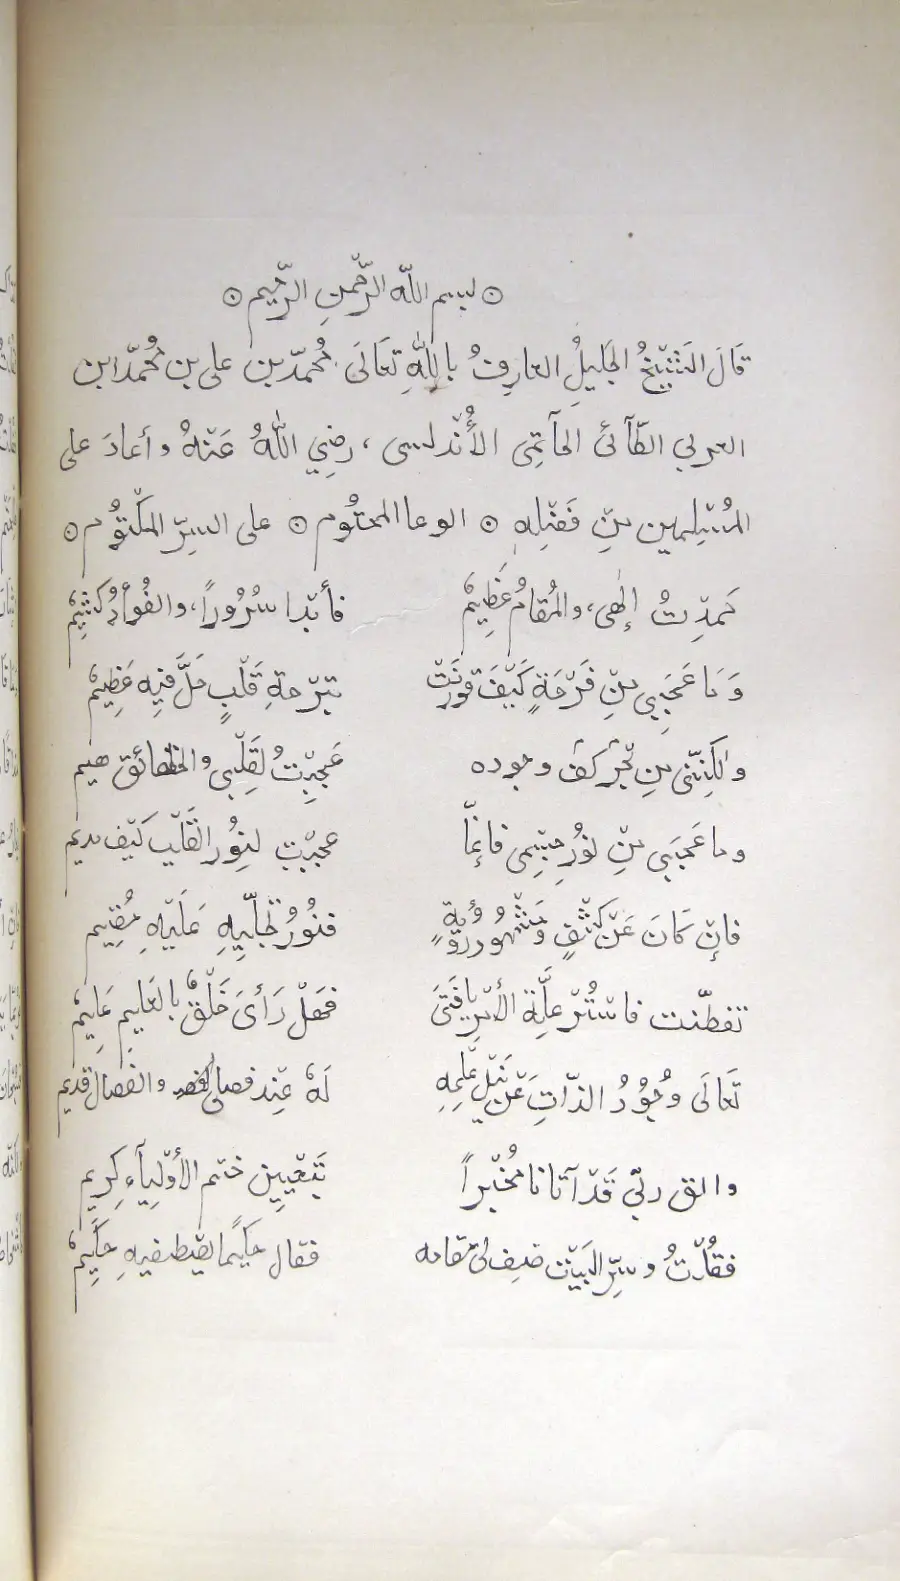 ⊙ لبسم الله الرّحمنِ الرّحيم ⊙
قَالَ الشَّيْخُ الجَلِيلُ العَارِفُ بِاللّٰهِ تَعَالَى مُحَمّد بن على بن مُحَمّد ابن
العربي الطّآئىّ الحَآتِمِى الأُنْدلسى، رضِي اللّٰهُ عَنْهُ وأعادَ على
المُسْلِمين مِنْ فَضْلِهِ ⊙ الوعا المختُوم ⊙ على السِرّ المكْتُوم ⊙
حَمدْتُ إلٰهى، والمُقامُ عَظِيمٌ فأبْدا سُرُورًا، والفُؤَادُ كَثِيمٌ
وَمَا عَجَبِي مِنْ فَرْحَةٍ كَيْفَ قورنَتْ بتَرْحةِ قَلْبٍ حَلَّ فِيهِ عَظِيمٌ
ولكِنّنى مِن كشف وجوده عَجِبْتُ لِقَلْبى والحقائق هيم
وما عَجَبَى مِنْ نُورِ جِسْمِى فإنمّا عجبْت لِنُور القَلْب كَيْفَ يديم
فإنْ كَانَ عَنْ كَشْفٍ ومَشْهُودِ رُؤْيةٍ فنُورُ تجَلّيهِ عَلَيْهِ مُقِيم
تفطّنت فاسْتُرْ علَّةِ الأَمْرِ يا فَتَى فَهَلْ رَأى خَلْقٌ بالعَلِيمِ عَلِيمٌ
تَعَالَى وُجُودُ الذّاتِ عَنْ نَيْلِ عِلْمِهِ لَهُ عِنْد فصلى والفصال قديم
والق ربّي قَدْ آتانا مُخْبِرًا بتَعْيِينِ ختم الأوْلِيآءِ كِريم
فقُلْتُ وسِرّ البَيْت صِف لى مقامه فقال حَكِيمًا يصْطفيهِ حَكِيمٌ